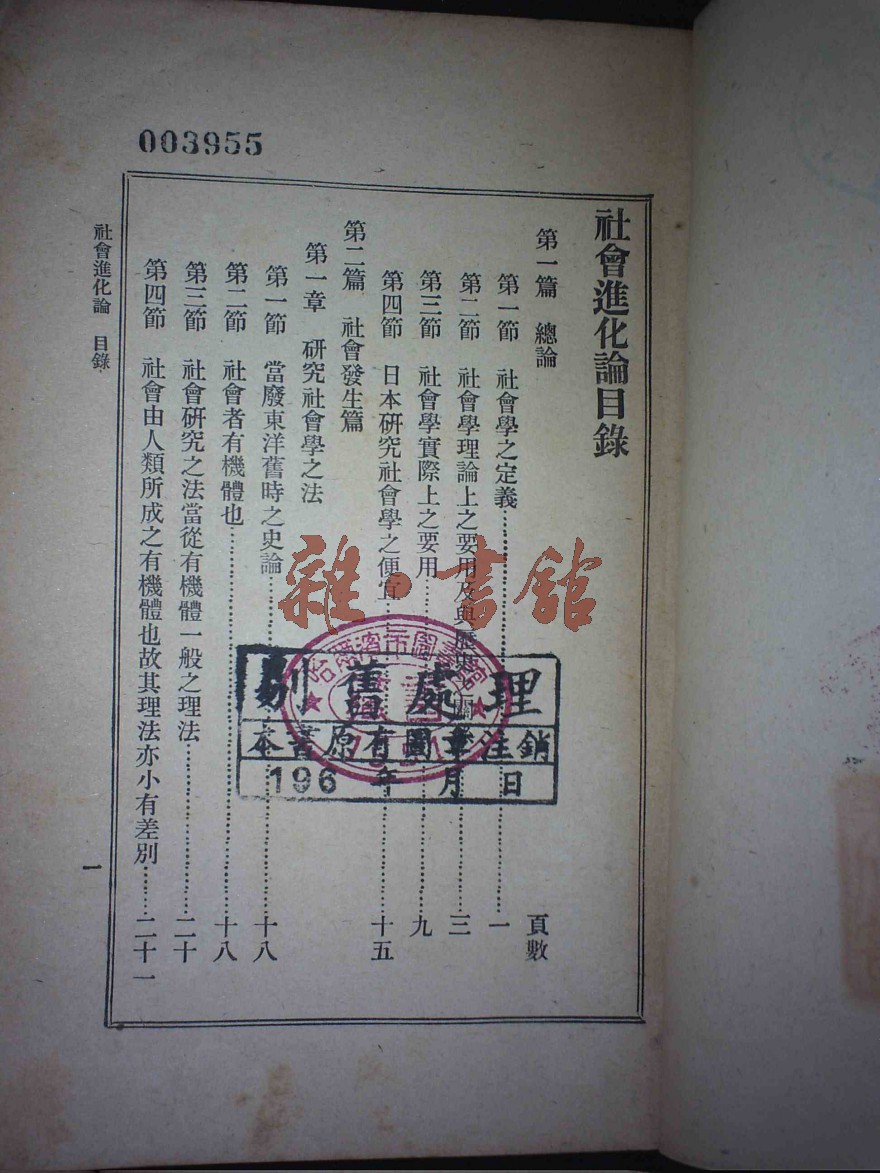 003955
社會進化論目錄
第一篇 總論
頁數
第一節 社會學之定義……一
第二節 社會學理論上之要用及與歷史之關……三
第三節 社會學實際上之要用……九
第四節 日本研究社會學之便宜……十五
第二篇 社會發生篇
第一章 研究社會學之法
第一節 當廢東洋舊時之史論……十八
第二節 社會者有機體也……十八
第三節 社會研究之法當從有機體一般之理法……二十
第四節 社會由人類所成之有機體也故其理法亦小有差別……二十一
社會進化論 目錄
一
雜·書館
哈爾濱市圖書館
剔舊處理
本書原有圖章注銷
196 年 月 日